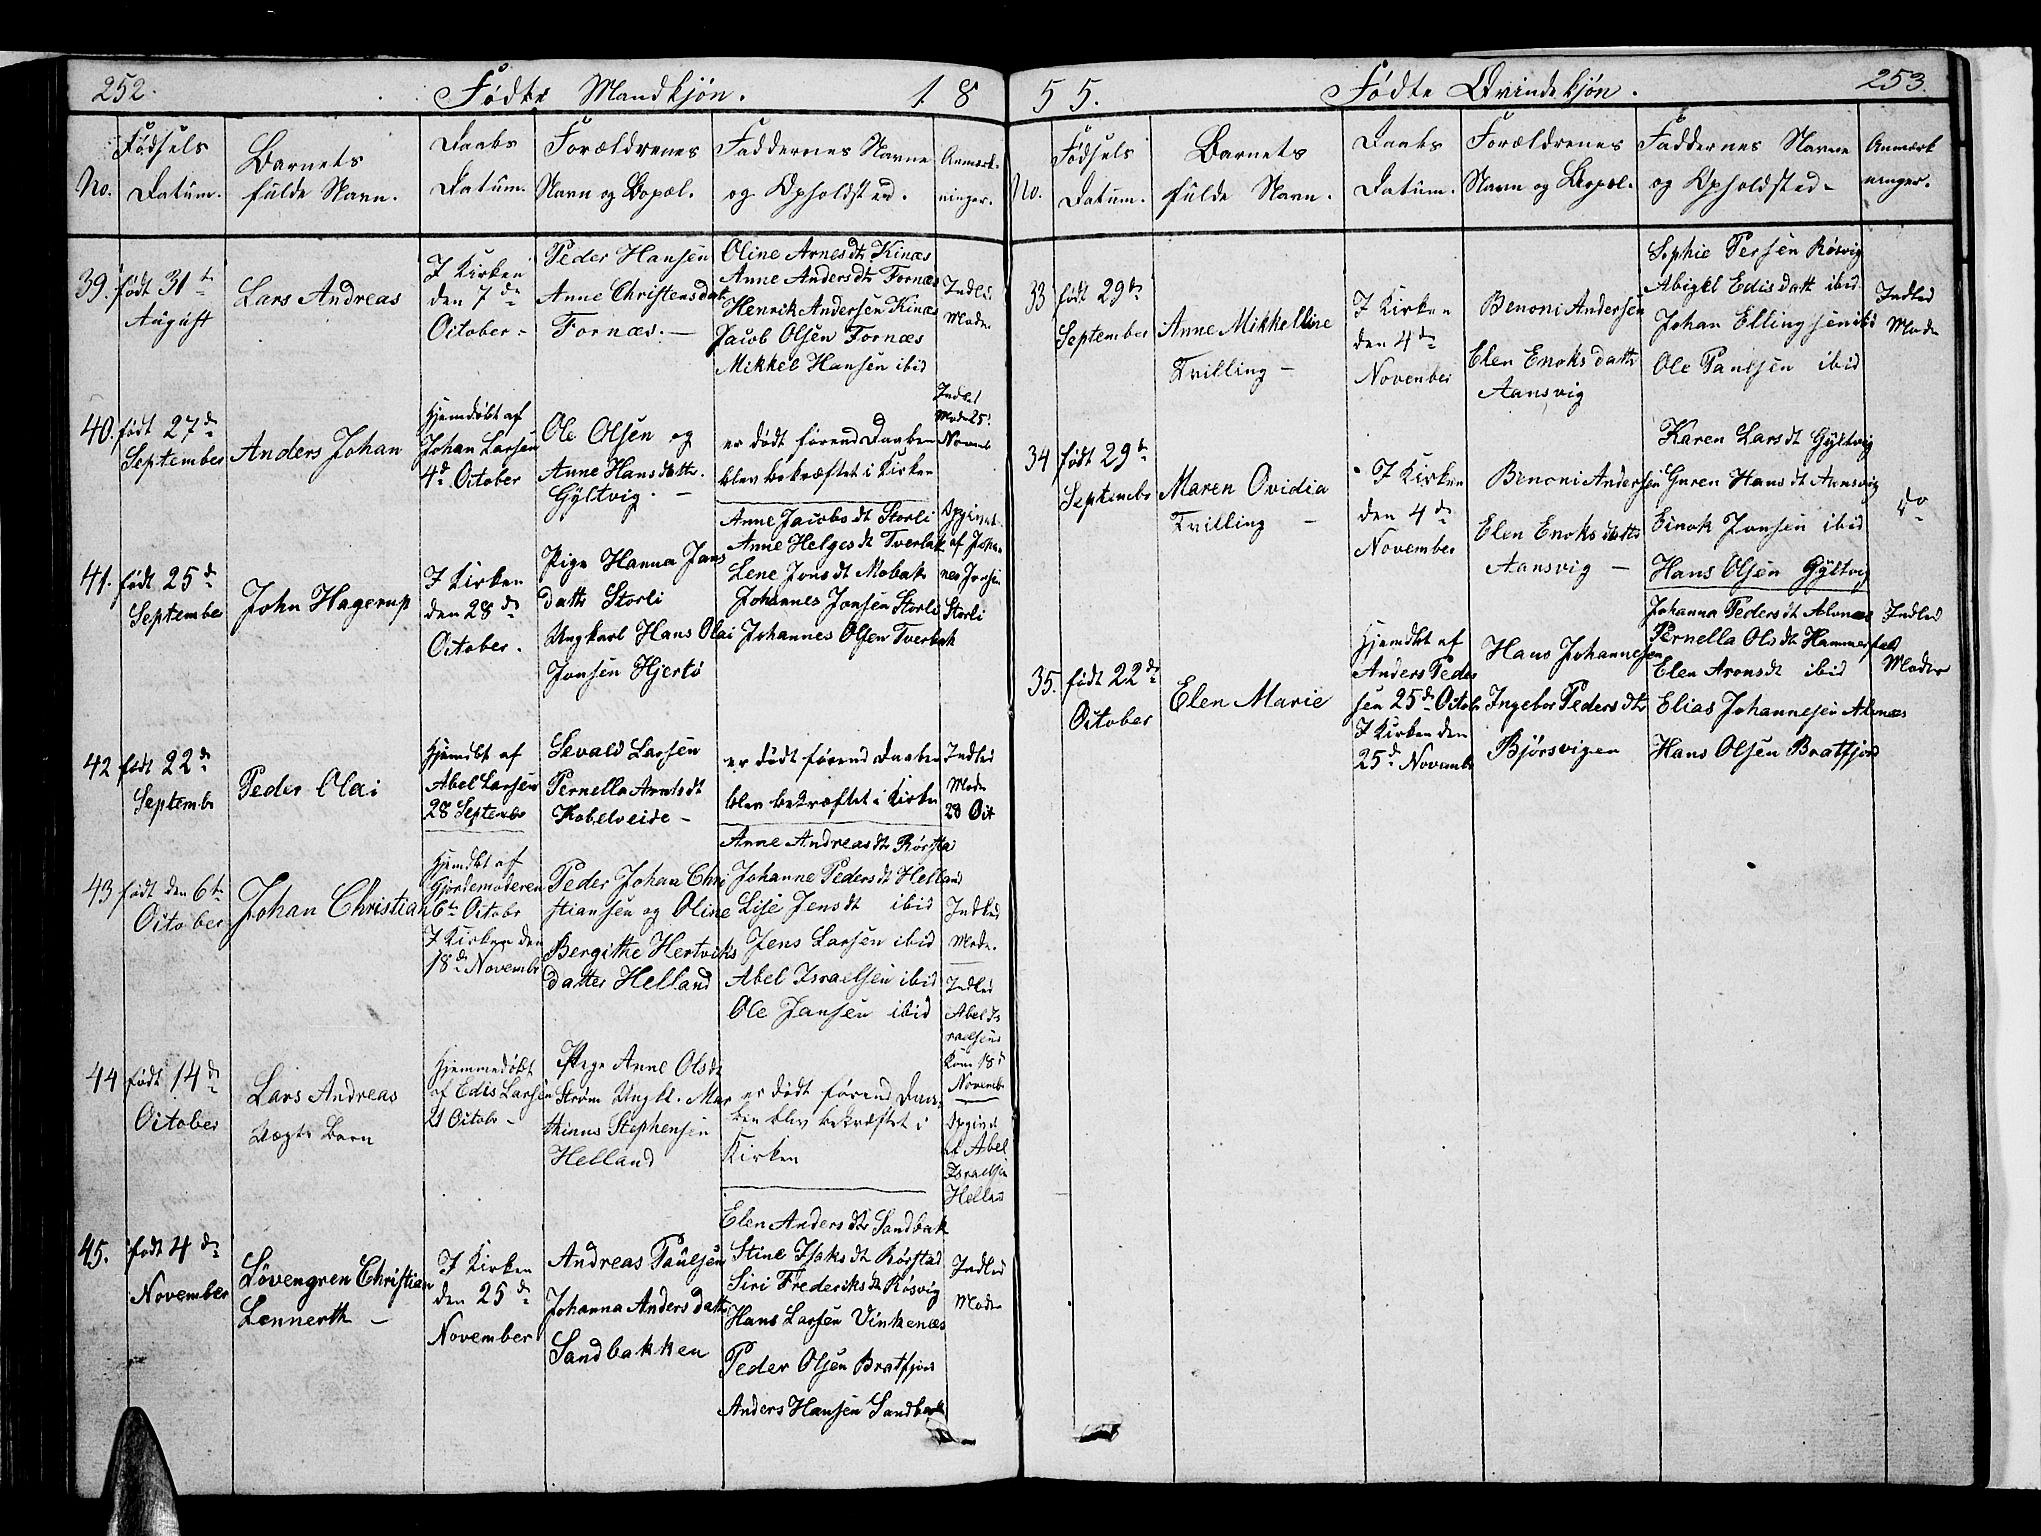 252. Fødte Mandkjøn. 18
No.
Fødsels
Datum.
Barnets
fulde Navn.
Daabs
Datum.
Forældrenes
Navn og Bopæl.
Faddernes Navne
og Opholdsted.
Anmærk-
ninger.
39. født 31te
August
Lars Andreas
I Kirken
den 7de
Octtober
Peder Hansen
Anne Christensdatt
Fornæs. —
Oline Arnesdtr Kinæs
Anne Andersdtr Fornæs
Henrik Andersen Kinæs
Jacob Olsen Fornæs
Mikkel Hansen ibid
Indled
Mode
40. født 27de
September
Anders Johan
Hjemdøbt af
Johan Larsen
4de October
Ole Olsen og
Anne Hansdatter
Gyltvig. —
er dødt førend Daaben
blev bekræftet i Kirken
Indled
Mode 25de
Novemb
41. født 25de
September
John Hagerup
I Kirken
den 28de
October.
Pige Hanna Jans
datter Storli
Ungkarl Hans Olai
Jonsen Hjertø
Anne Jacobsdt Storli
Anne Helgesdt Tverbak
Lene Jonsdt Mobak
Johannes Jonsen Storli
Johannes Olsen Tverbak
Opgivet
af Johan
nes Jonsen
Storli
42 født 22de
Septembr
Peder Olai
Hjemdbt af
Abel Larsen
28 Septembr
Sevald Larsen
Pernella Arntsdt
Kobelveide —
er dødt førend Daaben
blev bekræftet i Kirken
Indled
Mode
28 Oct
43 født den 6te
October
Johan Christian
Hjemdbt af
Gjordemoderen
6te Octobr
I Kirken den
18de Novembr
Peder Johan Chri
stiansen og Oline
Bergithe Hertviks
datter Helland
Anne Andreasdtr Rørsta
Johanne Pedersdt Helland
Lise Jensdt ibid
Jens Larsen ibid
Abel Israelsen ibid
Ole Jansen ibid
Indled
Mode.
44 født 14de
October
Lars Andreas
Uægte Barn
Hjemmedøbt
af Edis Larsen
21 Octobr —
Pige Anne Olsdt
Strøm Ungkl. Mar
thinus Stephensen
Helland
er dødt førend Daa-
ben blev bekræftet i
Kirken
Indled
Abel Is
raelsens
Kone 18de
Novembr
Opgivet
af Abel
Israelsen
Helland
45. født 4de
November
Løvengren Christian
Lennerth —
I Kirken
den 25de
November
Andreas Paulsen
Johanna Andersdatter
Sandbakken
Elen Andersdtr Sandbak
Stine Isaksdt Rørstad
Siri Frederiksdt Røsvig
Hans Larsen Vinkenæs
Peder Olsen Bratfjord
Anders Hansen Sandbak
Indled
Mode
55. Fødte Qvindekjøn. 253
No.
Fødsels
Datum.
Barnets
fulde Navn.
Daabs
Datum.
Forældrenes
Navn og Bopæl.
Faddernes Navne
og Opholdsted-
Anmærk
ninger.
33 født 29de
September
Anne Mikkelline
Tvilling —
I Kirken
den 4de
November
Benoni Andersen
Elen Enoksdatter
Aansvig
Sophie Persen Røsvig
Abigel Edisdatt ibid
Johan Ellingsen ibid
Ole Paulsen ibid
Indled
Mode
34 født 29de
Septembr
Maren Ovidia
Tvilling —
I Kirken
den 4de
November
Benoni Andersen
Elen Enoksdatter
Aansvig —
Karen Larsdt Gyltvig
Guren Hansdt Aansvig
Einok Jonsen ibid
Hans Olsen Gyltvig
do
35. født 22de
October
Elen Marie
Hjemdbt af
Anders Peder
sen 25de Octobr
I Kirken den
25de Novembr
Hans Johannesen
Ingebor Pedersdtr
Bjørsvigen
Johanna Pedersdt Alvnæs
Pernella Olsdt Hammerfald
Elen Aronsdt ibid
Elias Johannesen Alvnæs
Hans Olsen Bratfjord
Indled
Moder